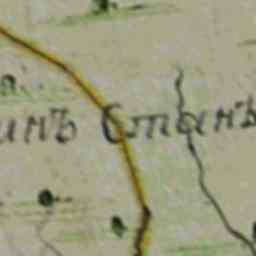 инъ Станъ